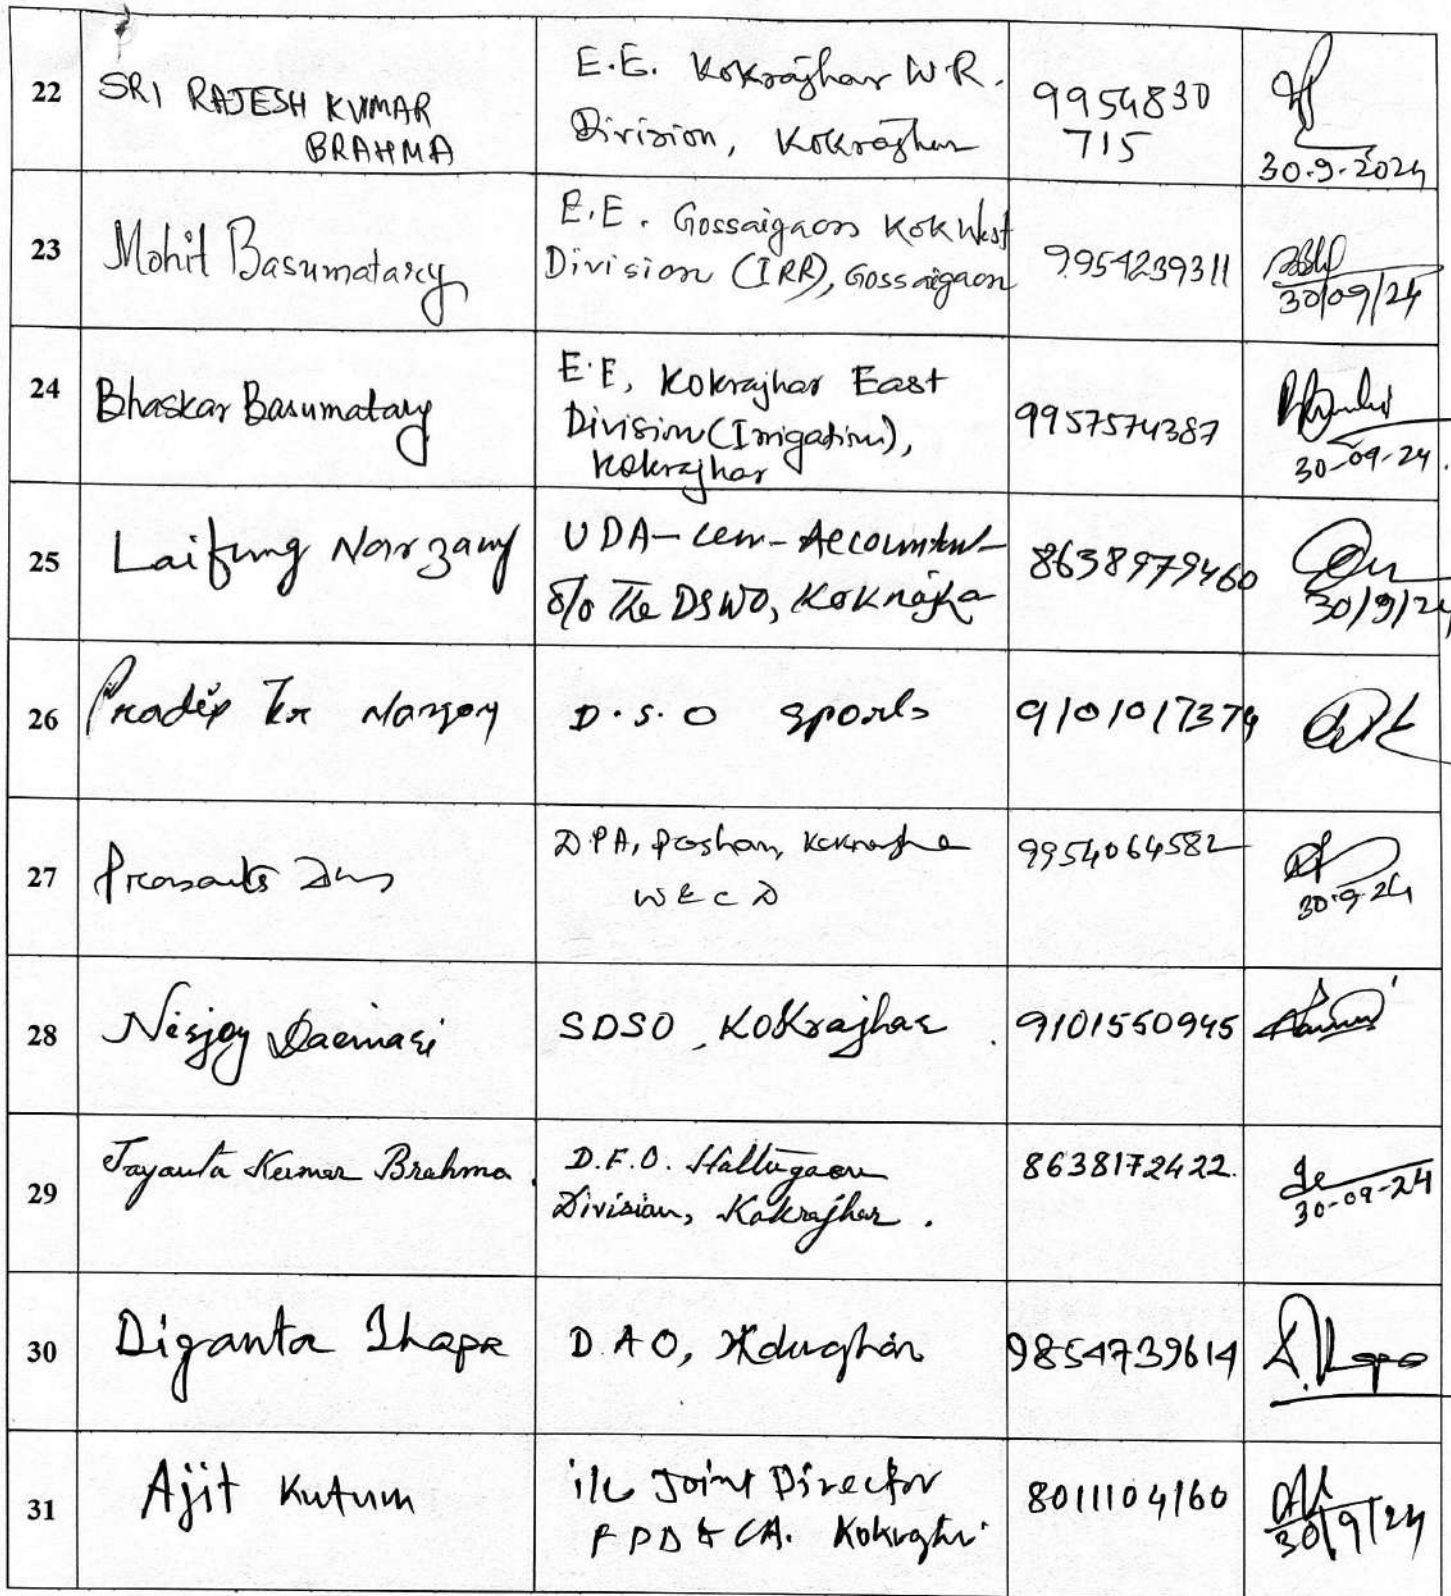 22 SRI RAJESH KUMAR
BRAHMA
E.E. Kokrajhar W.R.
Division, Kokrajhar
9954830
715
30.9.2024
23 Mohit Basumatary
E.E. Gossaigaon Kok West
Division (IRR), Gossaigaon
9954239311
30/09/24
24 Bhaskar Basumatary
E.E, Kokrajhar East
Division (Irrigation),
Kokrajhar
9957574387
30-09-24.
25 Laifung Narzary
UDA-cum-Accountant
O/o The DSWO, Kokrajha
8638979460
30/9/24
26 Pradip Kr Narzary
D.S.O Sports
9101017374
27 Prasanta Das
D.P.A, Poshan, Kokrajha
W & C D
9954064582
30.9.24
28 Nirjoy Daimari
SDSO, Kokrajhar.
9101550945
29 Jayanta Kumar Brahma.
D.F.O. Haltugaon
Division, Kokrajhar.
8638172422.
30-09-24
30 Diganta Thapa
D.A.O,
9854739614
31 Ajit Kutum
i/c Joint Director
F P D & CA. Kokrajhar
8011104160
30/9/24